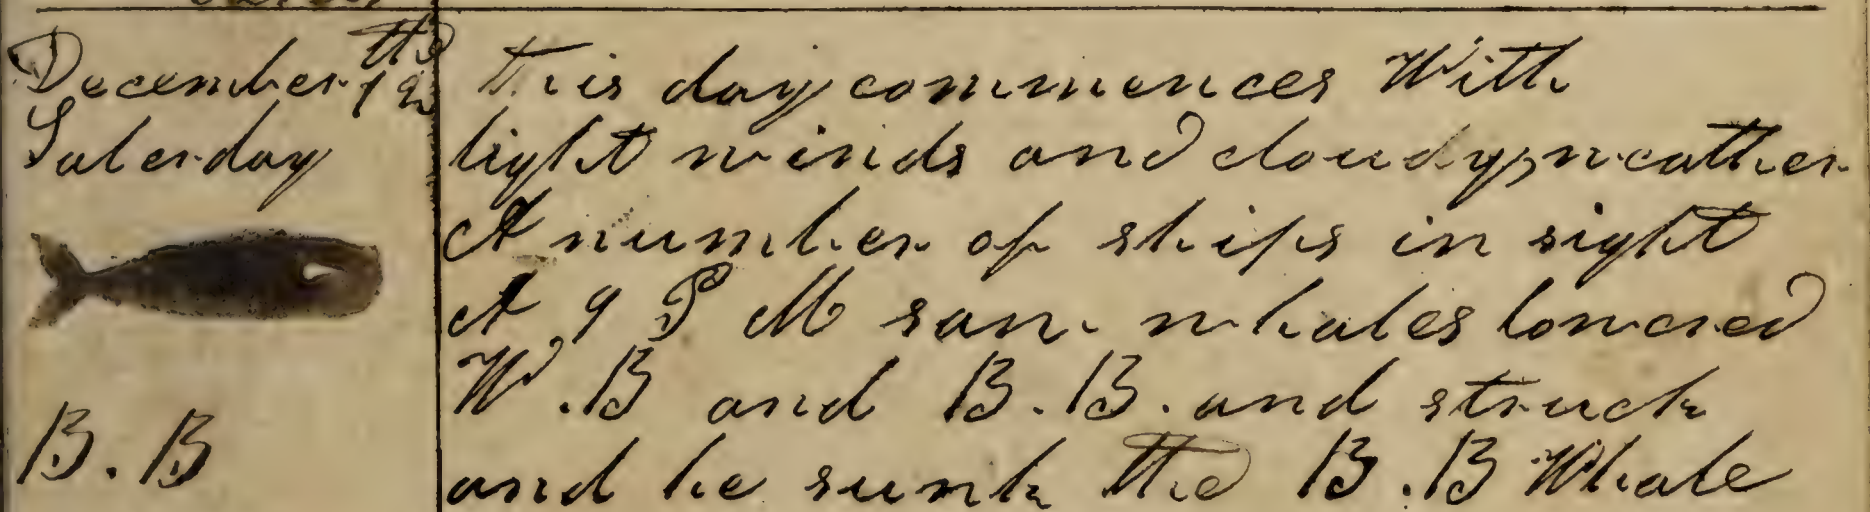 December 12th
Saterday
B.B
This day commences With
light winds and cloudy, weather
A number of ships in sight
A 9 P M saw whales lowered
W.B and B.B. and struck
and he sunk the B.B Whale